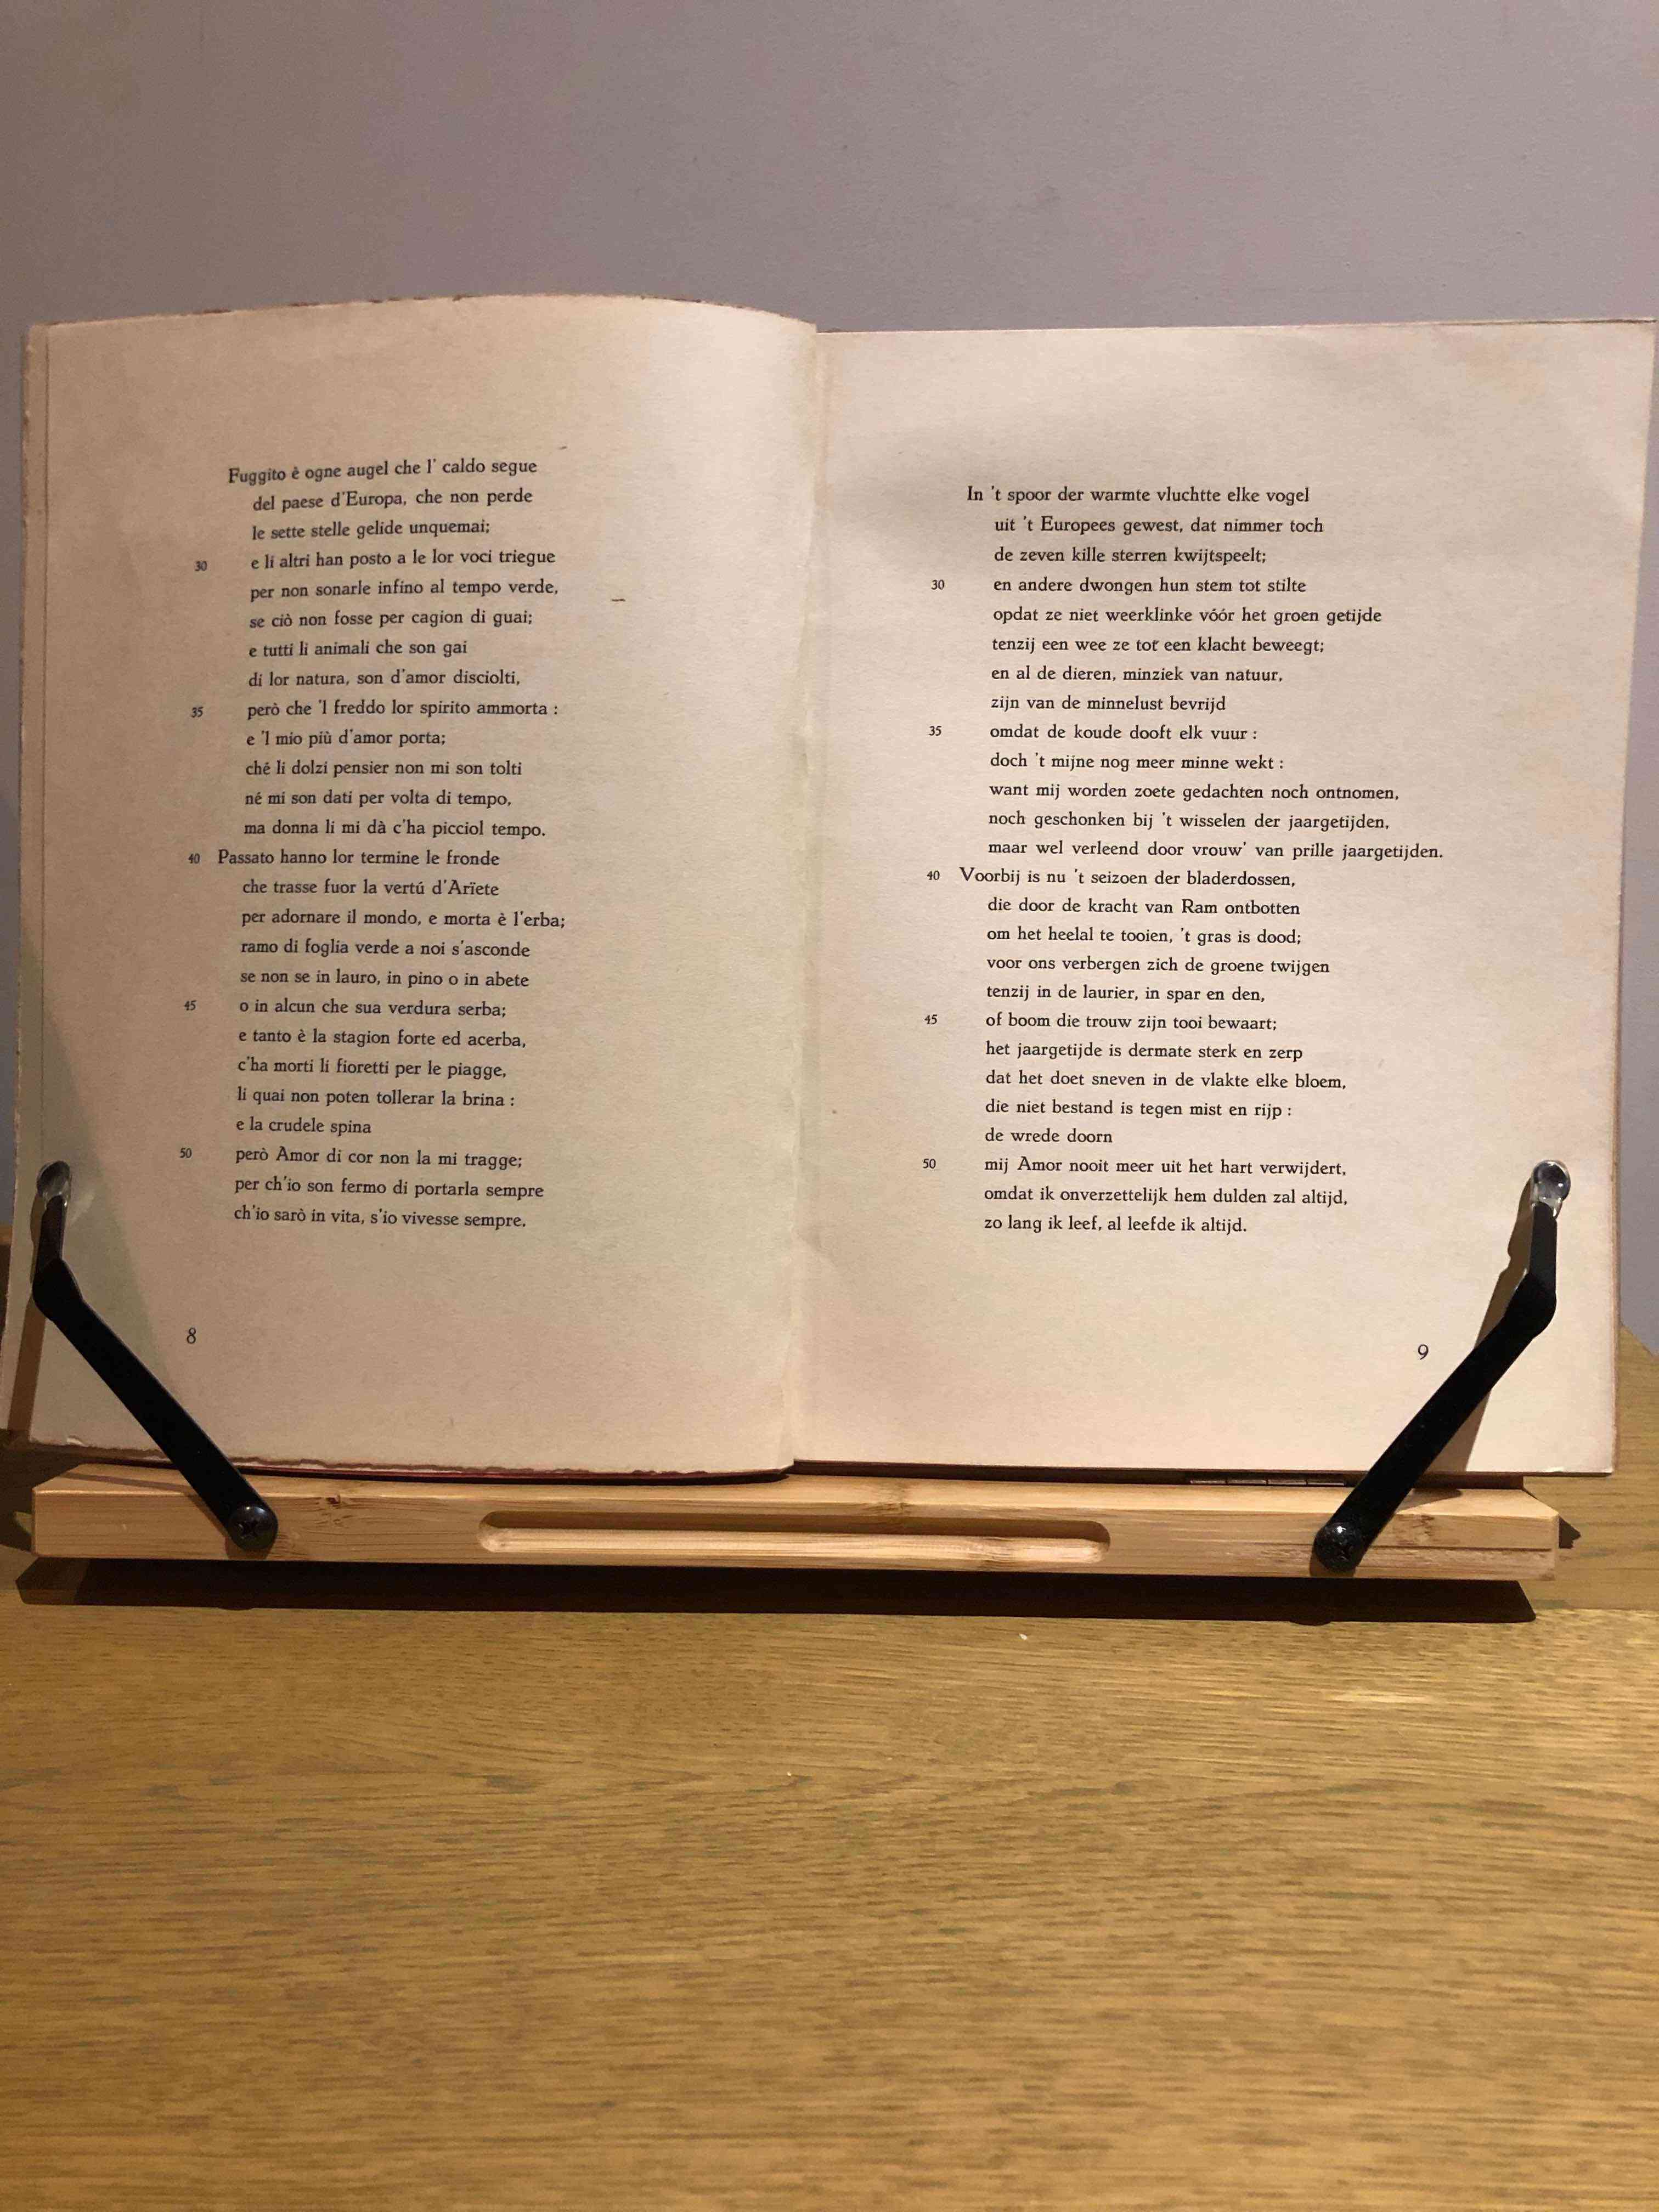 Fuggito è ogne augel che l' caldo segue
del paese d'Europa, che non perde
le sette stelle gelide unquemai;
30 e li altri han posto a le lor voci triegue
per non sonarle infino al tempo verde,
se ciò non fosse per cagion di guai;
e tutti li animali che son gai
di lor natura, son d'amor disciolti,
35 però che 'l freddo lor spirito ammorta :
e 'l mio più d'amor porta;
ché li dolzi pensier non mi son tolti
né mi son dati per volta di tempo,
ma donna li mi dà c'ha picciol tempo.
40 Passato hanno lor termine le fronde
che trasse fuor la vertú d'Arïete
per adornare il mondo, e morta è l'erba;
ramo di foglia verde a noi s'asconde
se non se in lauro, in pino o in abete
45 o in alcun che sua verdura serba;
e tanto è la stagion forte ed acerba,
c'ha morti li fioretti per le piagge,
li quai non poten tollerar la brina :
e la crudele spina
50 però Amor di cor non la mi tragge;
per ch'io son fermo di portarla sempre
ch'io sarò in vita, s'io vivesse sempre.
8
In 't spoor der warmte vluchtte elke vogel
uit 't Europees gewest, dat nimmer toch
de zeven kille sterren kwijtspeelt;
30 en andere dwongen hun stem tot stilte
opdat ze niet weerklinke vóór het groen getijde
tenzij een wee ze tot een klacht beweegt;
en al de dieren, minziek van natuur,
zijn van de minnelust bevrijd
35 omdat de koude dooft elk vuur :
doch 't mijne nog meer minne wekt :
want mij worden zoete gedachten noch ontnomen,
noch geschonken bij 't wisselen der jaargetijden,
maar wel verleend door vrouw' van prille jaargetijden.
40 Voorbij is nu 't seizoen der bladerdossen,
die door de kracht van Ram ontbotten
om het heelal te tooien, 't gras is dood;
voor ons verbergen zich de groene twijgen
tenzij in de laurier, in spar en den,
45 of boom die trouw zijn tooi bewaart;
het jaargetijde is dermate sterk en zerp
dat het doet sneven in de vlakte elke bloem,
die niet bestand is tegen mist en rijp :
de wrede doorn
50 mij Amor nooit meer uit het hart verwijdert,
omdat ik onverzettelijk hem dulden zal altijd,
zo lang ik leef, al leefde ik altijd.
9